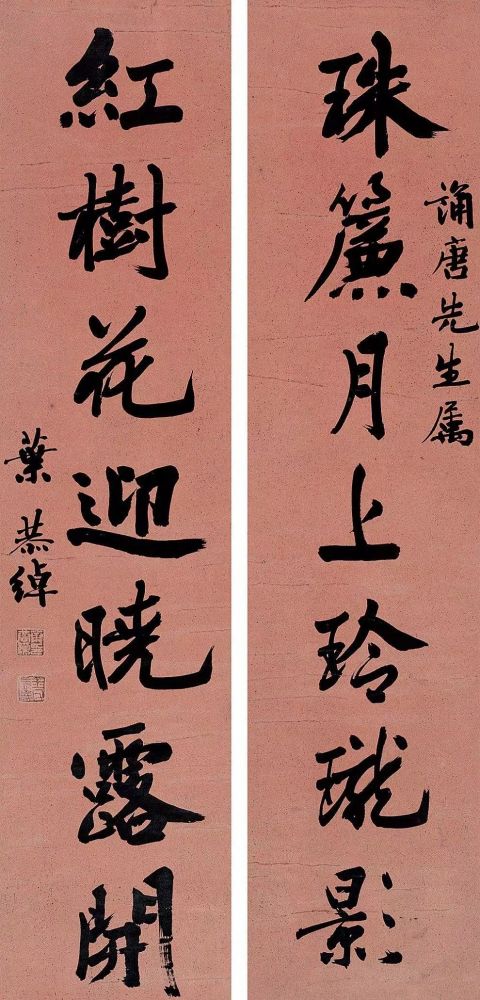 誦唐先生属
珠簾月上玲瓏影
紅樹花迎曉露開
葉恭綽